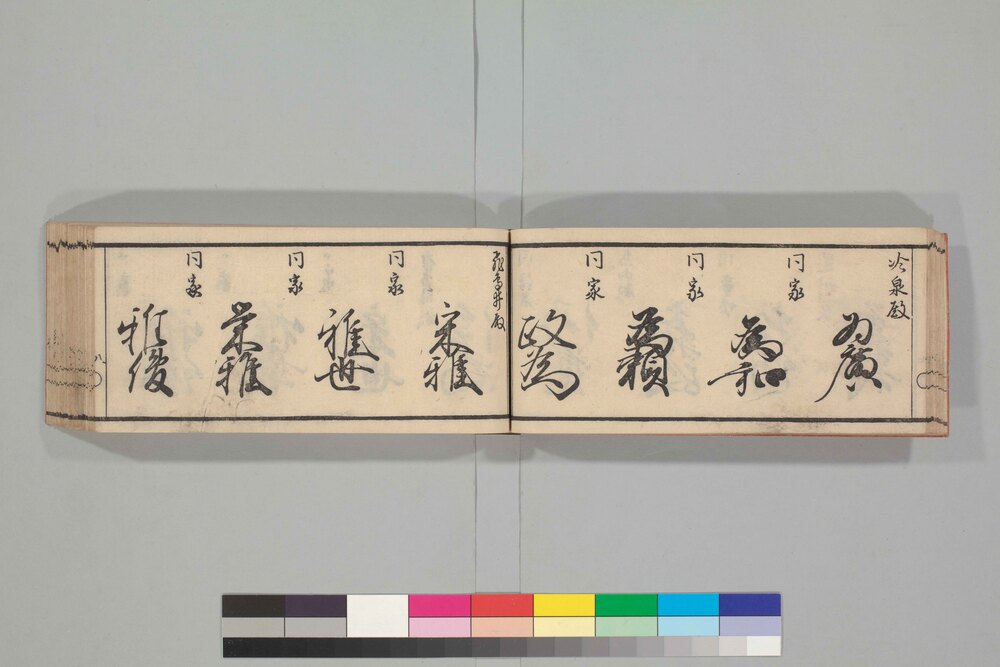 冷泉殿
為廣
同家
為和
同家
為頼
同家
政為
飛鳥井殿
宋雅
同家
雅世
同家
栄雅
同家
雅俊